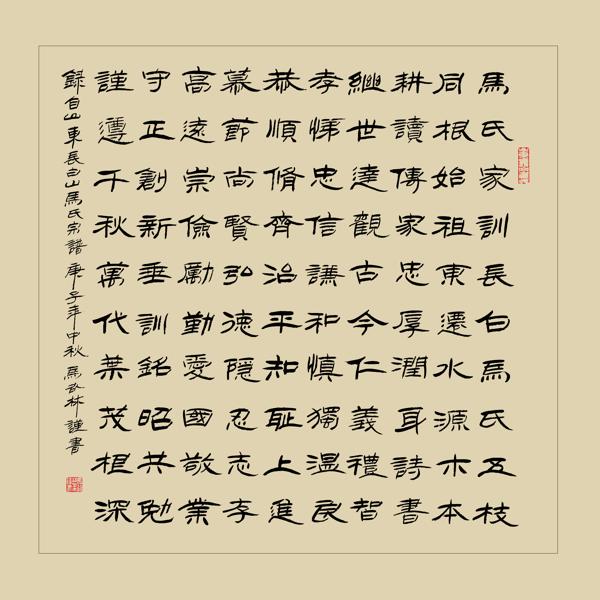 馬氏家訓長白馬氏五枝
同根始祖東遷水源木本
耕讀傳家忠厚潤身詩書
繼世達觀古今仁義禮智
孝悌忠信謙和慎獨溫良
恭順脩齊治平知恥上進
慕節尚賢弘德隱忍志存
高遠崇儉勵勤愛國敬業
守正創新垂訓銘昭共勉
謹遵千秋萬代葉茂根深
錄自山東長白山馬氏宗譜庚子年中秋馬林謹書